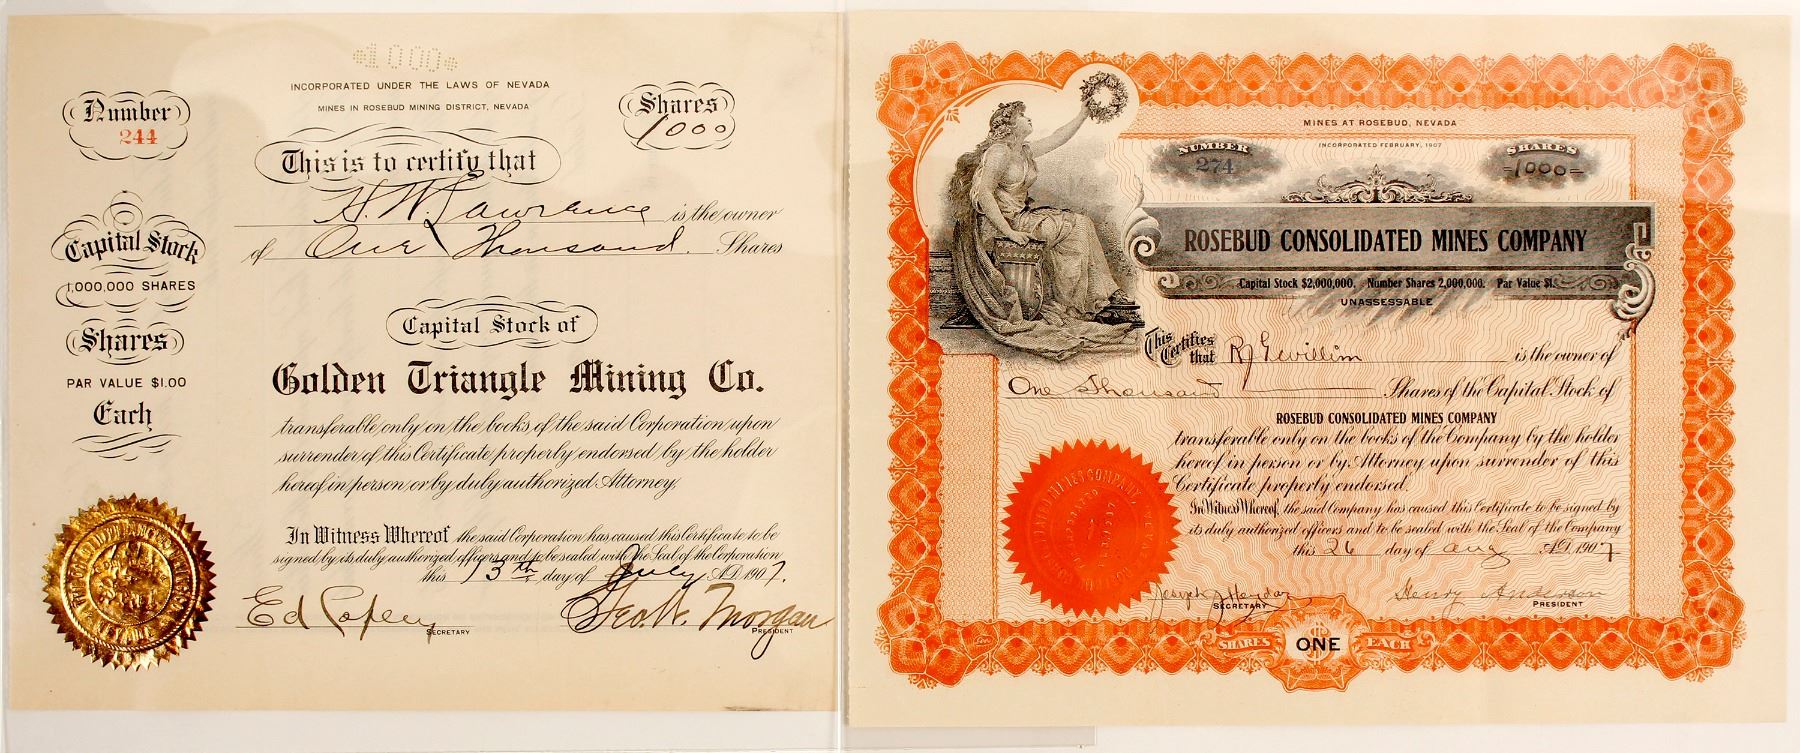 1000
INCORPORATED UNDER THE LAWS OF NEVADA
MINES IN ROSEBUD MINING DISTRICT, NEVADA
Number
244
Shares
1000
This is to certify that
H. W. Lawrence is the owner
of One Thousand. Shares
Capital Stock
1,000,000 SHARES
Shares
PAR VALUE $1.00
Each
Capital Stock of
Golden Triangle Mining Co.
transferable only on the books of the said Corporation upon
surrender of this Certificate properly endorsed by the holder
hereof in person or by duly authorized Attorney.
In Witness Whereof the said Corporation has caused this Certificate to be
signed by its duly authorized officers and to be sealed with the Seal of the Corporation
this 13th day of July A.D. 1907.
Ed
SECRETARY
Geo. W. Morgan
PRESIDENT
MINES AT ROSEBUD, NEVADA
INCORPORATED FEBRUARY, 1907
NUMBER
274
SHARES
-1000-
ROSEBUD CONSOLIDATED MINES COMPANY
Capital Stock $2,000,000. Number Shares 2,000,000. Par Value $1.
UNASSESSABLE
This Certifies that R J Gwillim is the owner of
One Thousand Shares of the Capital Stock of
ROSEBUD CONSOLIDATED MINES COMPANY
transferable only on the books of the Company by the holder
hereof in person or by Attorney upon surrender of this
Certificate properly endorsed.
In Witness Whereof, the said Company has caused this Certificate to be signed by
its duly authorized officers and to be sealed with the Seal of the Company
this 26 day of Aug A.D. 1907
Joseph
SECRETARY
Henry Anderson
PRESIDENT
SHARES ONE EACH